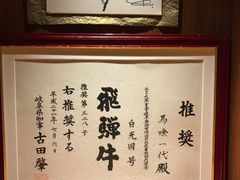 推奨
馬喰一代殿
白光国号
飛騨牛
推奨第三二八号
右推奨する
平成二十一年七月六日
岐阜県知事 古田肇